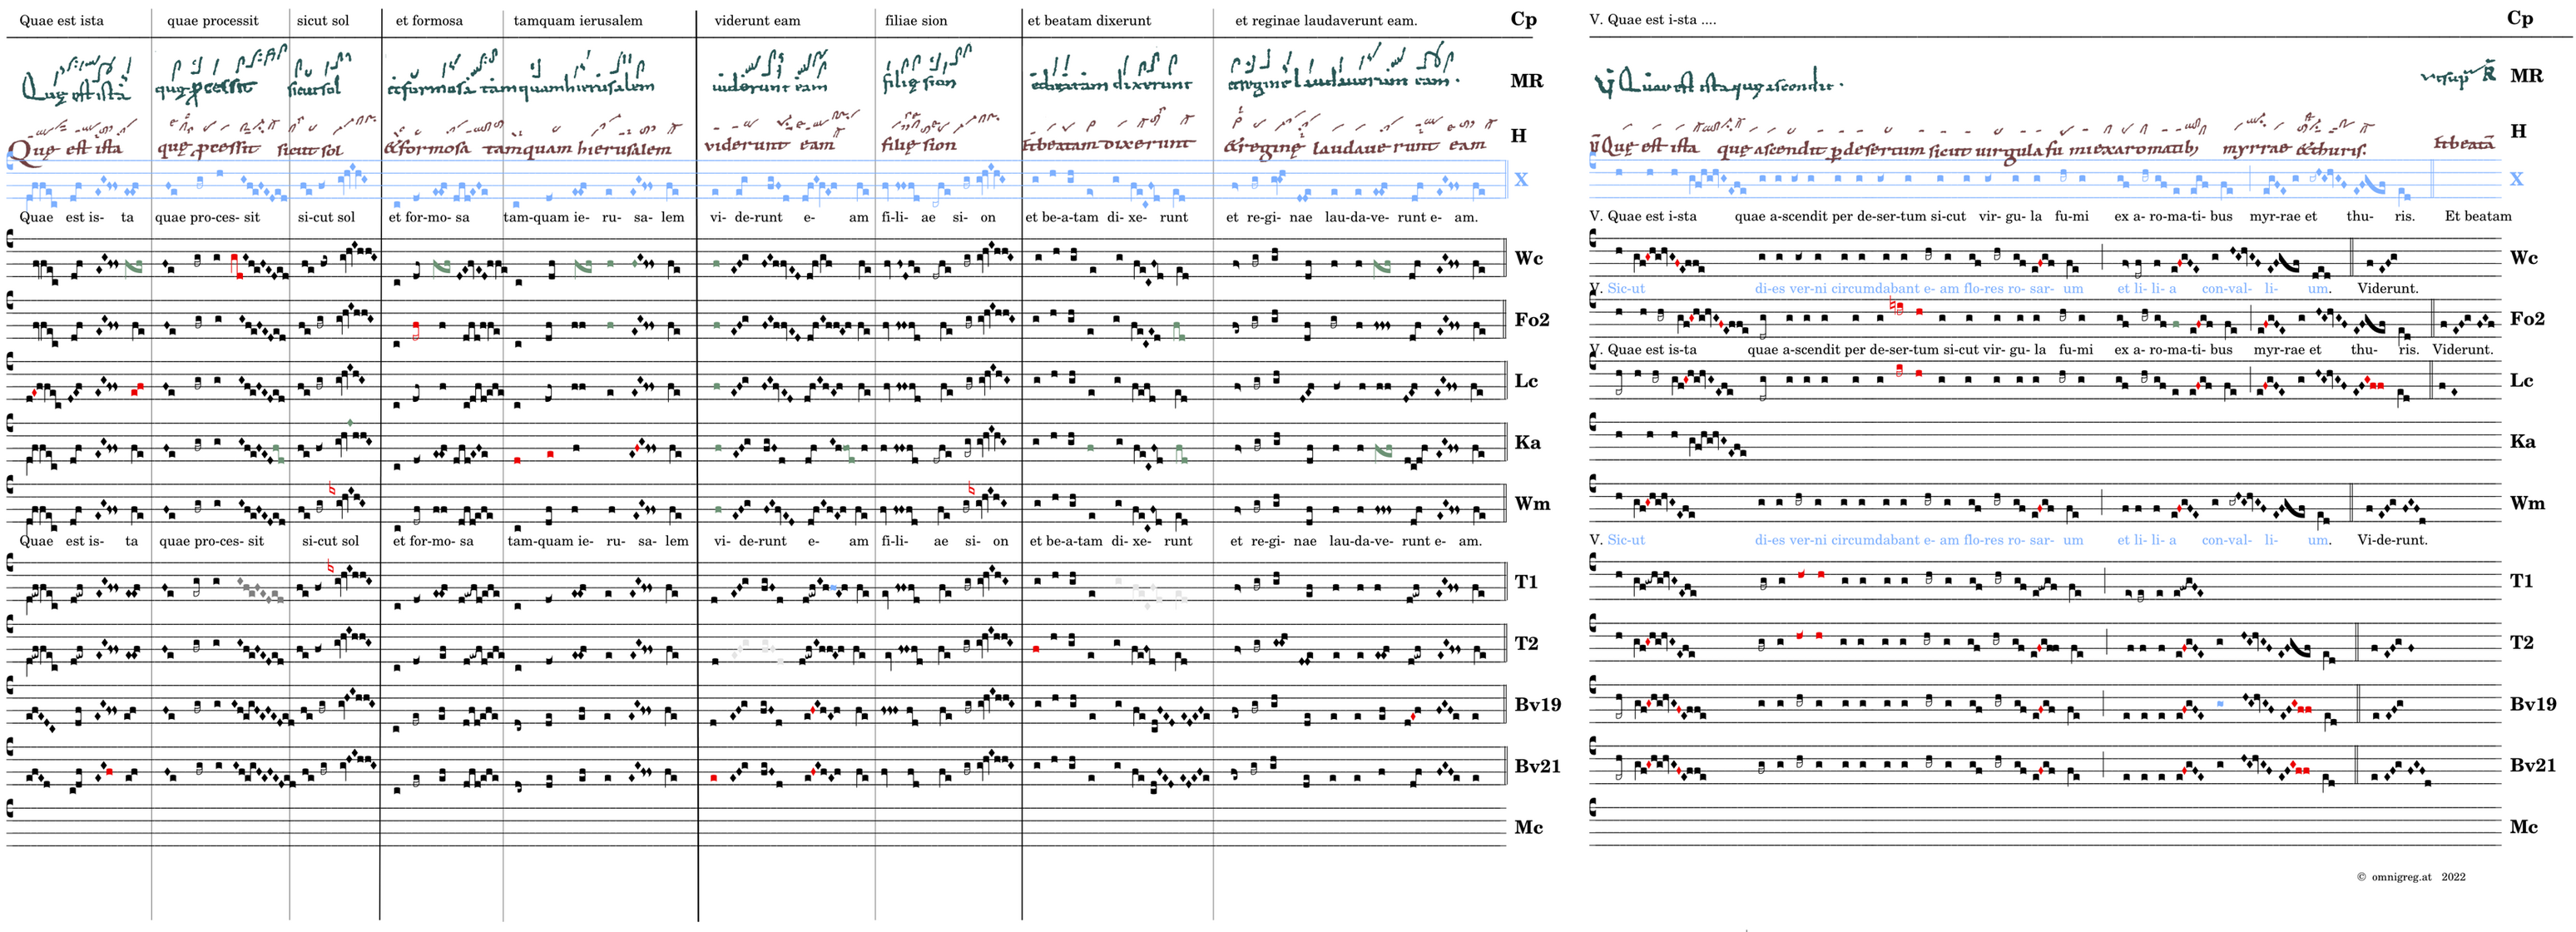 Quae est ista quae processit sicut sol et formosa tamquam ierusalem viderunt eam filiae sion et beatam dixerunt et reginae laudaverunt eam. Cp
V. Quae est i-sta .... Cp
Quę est ista quę processit sicut sol et formosa tamquam hierusalem viderunt eam filię sion et beatam dixerunt et reginę laudaverunt eam. MR
V Quae est ista quę ascendit. MR
Quę est ista quę processit sicut sol et formosa tamquam hierusalem viderunt eam filię sion Et beatam dixerunt & reginę laudaverunt eam H
V Quę est ista quę ascendit p desertum sicut uirgula fumi ex aromatib myrrae & thuris. Et beatā H
X
X
Quae est is- ta quae pro-ces- sit si-cut sol et for-mo- sa tam-quam ie- ru- sa- lem vi- de-runt e- am fi-li- ae si- on et be-a-tam di- xe- runt et re-gi- nae lau-da-ve- runt e- am.
V. Quae est i-sta quae a-scendit per de-ser-tum si-cut vir- gu- la fu-mi ex a- ro-ma-ti- bus myr-rae et thu- ris. Et beatam
Wc
Wc
V. Sic-ut di-es ver-ni circumdabant e- am flo-res ro- sar- um et li- li- a con-val- li- um. Viderunt.
Fo2
Fo2
V. Quae est is-ta quae a-scendit per de-ser-tum si-cut vir- gu- la fu-mi ex a- ro-ma-ti- bus myr-rae et thu- ris. Viderunt.
Lc
Lc
Ka
Ka
Wm
Wm
Quae est is- ta quae pro-ces- sit si-cut sol et for-mo- sa tam-quam ie- ru- sa- lem vi- de-runt e- am fi-li- ae si- on et be-a-tam di- xe- runt et re-gi- nae lau-da-ve- runt e- am.
V. Sic-ut di-es ver-ni circumdabant e- am flo-res ro- sar- um et li- li- a con-val- li- um. Vi-de-runt.
T1
T1
T2
T2
Bv19
Bv19
Bv21
Bv21
Mc
Mc
© omnigreg.at 2022